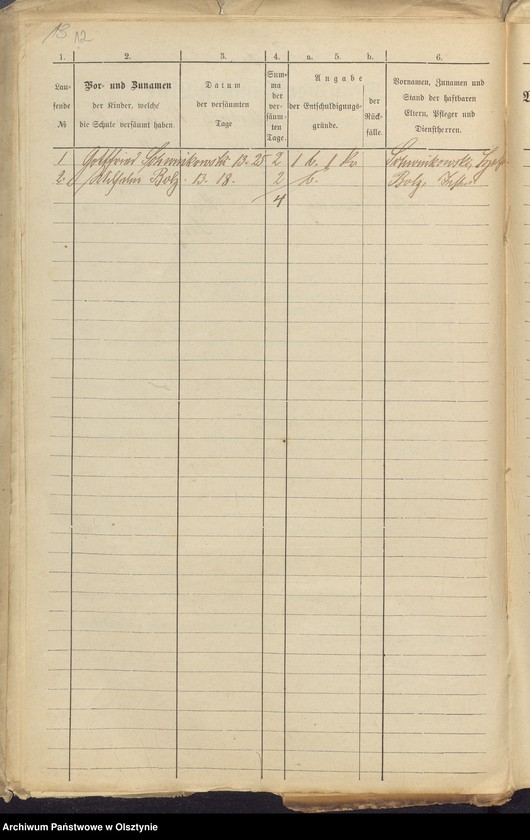 13 12
1. 2. 3. 4. a. 5. b. 6.
Lau-
fende
№
Vor- und Zunamen
der Kinder, welche
die Schule versäumt haben.
Datum
der versäumten
Tage
Sum-
ma
der
ver-
säum-
ten
Tage.
Angabe
der Entschuldigungs-
gründe.
der
Rück-
fälle.
Vornamen, Zunamen und
Stand der haftbaren
Eltern, Pfleger und
Dienstherren.
1 Gottfried 13. 25 2
2. Wilhelm Bolz 13. 18. 2 Bolz,
4
Archiwum Państwowe w Olsztynie